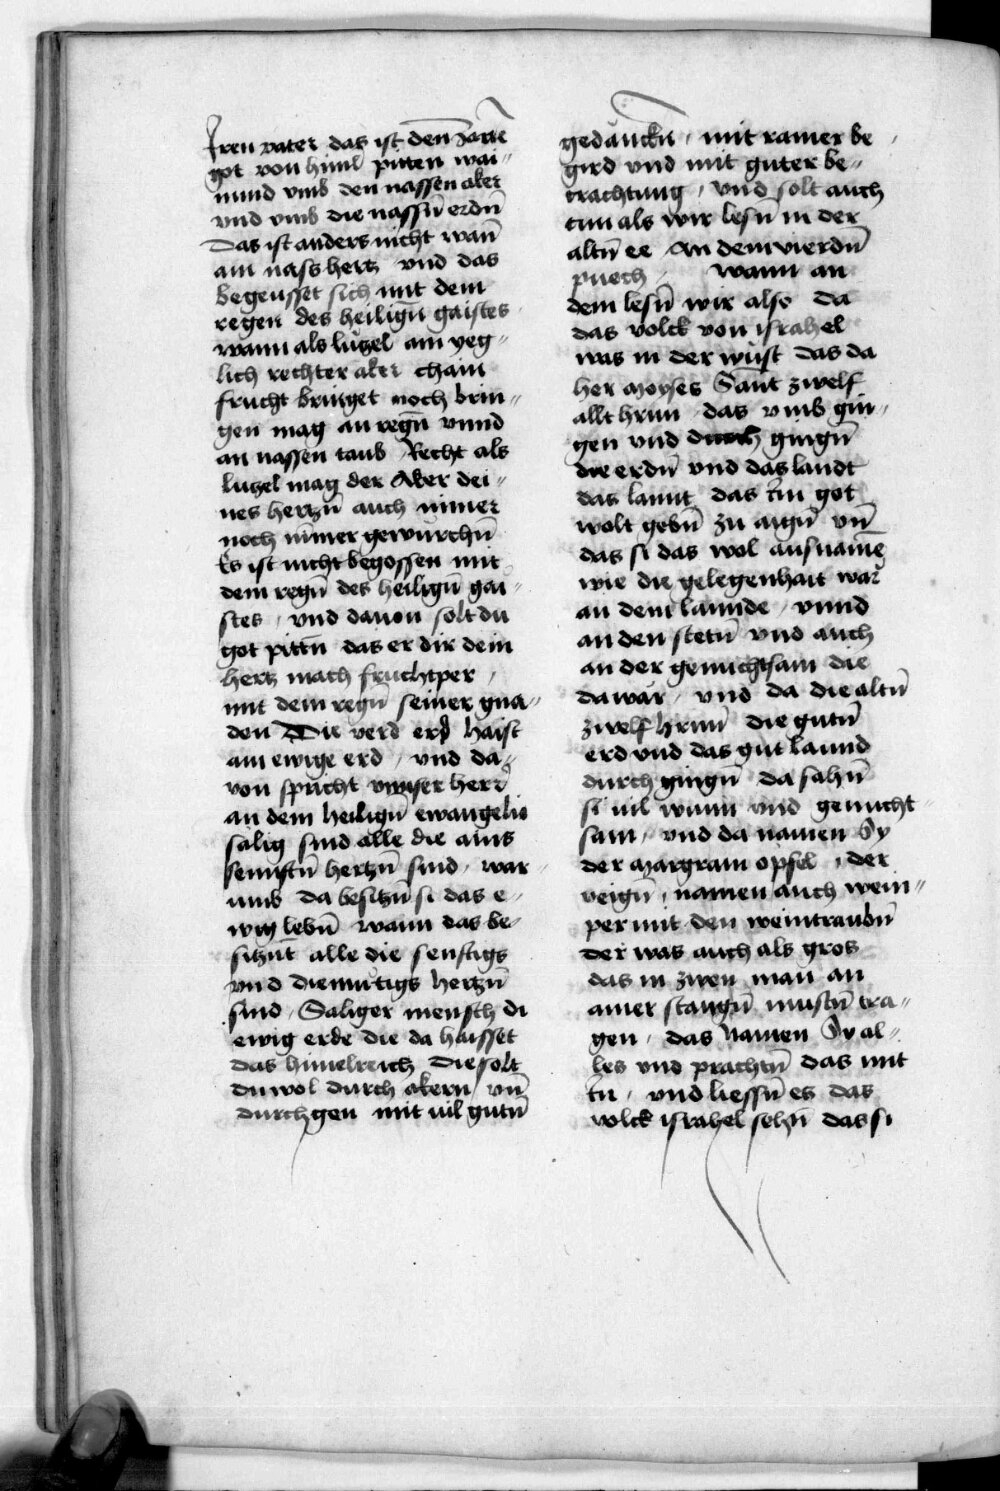 Jren vater das ist den̄ zarte
got von himl pitten wai„
nund vmb den nassen aker
vnd vmb die nassn̄ erdn̄
Das ist anders nicht wan̄
ain nass hertz vnd das
begeusset sich mit dem
regen des heilign̄ gaistes
wann als lützel ain yeg„
lich rechter aker chain
frucht bringet noch brin„
gen mag an regn̄ vnnd
an nassen taub Recht als
lutzel mag der Aker dei„
nes hertzn̄ auch nimer
noch nimer gewürchn̄
Es ist nicht begossen mit
dem regn̄ des heilign̄ gai„
stes / vnd dauon solt du
got pittn̄ das er dir dein
hertz mach fruchtper /
mit dem regn̄ seiner gna„
den Die verd erd haist
ain ewige erd / vnd da„
von spricht vnser herr
an dem heilign̄ ewangelio
sälig sind alle die ains
semftn̄ hertzn̄ sind / war
umb da besitzn̄ si das e„
wig lebn̄ wann das be„
sitzn̄t alle die senftigs
vnd diemütigs hertzn̄
sind / Saliger mensch di
ewig erde die da haisset
das himelreich die solt
du wol durch akern vn̄
durch gen mit uil gutn̄
gedanckn̄ / mit rainer be
gird vnd mit guter be„
trachtung / vnd solt auch
tun als wir lesn̄ in der
altn̄ ee An dem vierdn̄
puech / wann an
dem lesn̄ wir also da
das volck von israhel
was in der wüst das da
her moyses Sant zwelf
allt hrnn das vmb gin„
gen vnd durch gingn̄
die erdn̄ vnd das landt
das lannt das in got
wolt gebn̄ zu aign̄ vn̄
das si das wol ausname
wie die gelegenhait war
an dem lannde / vnnd
an den stetn̄ vnd auch
an der genuchtsam die
da war / vnd da die altn̄
zwelf hrnn̄ die gutn̄
erd vnd das gut lannd
durch gingn̄ da sahn̄
si uil wunn vnd genucht
sam / vnd da namen Sy
der margram opfel / der
veign̄ / namen auch wein„
per mit den weintraubn̄
der was auch als gros
das in zwen man an
ainer stangn̄ mustn̄ tra„
gen / das Namen Sy al„
les vnd prachtn̄ das mit
in / vnd liessn̄ es das
volck israhel sehn̄ das si